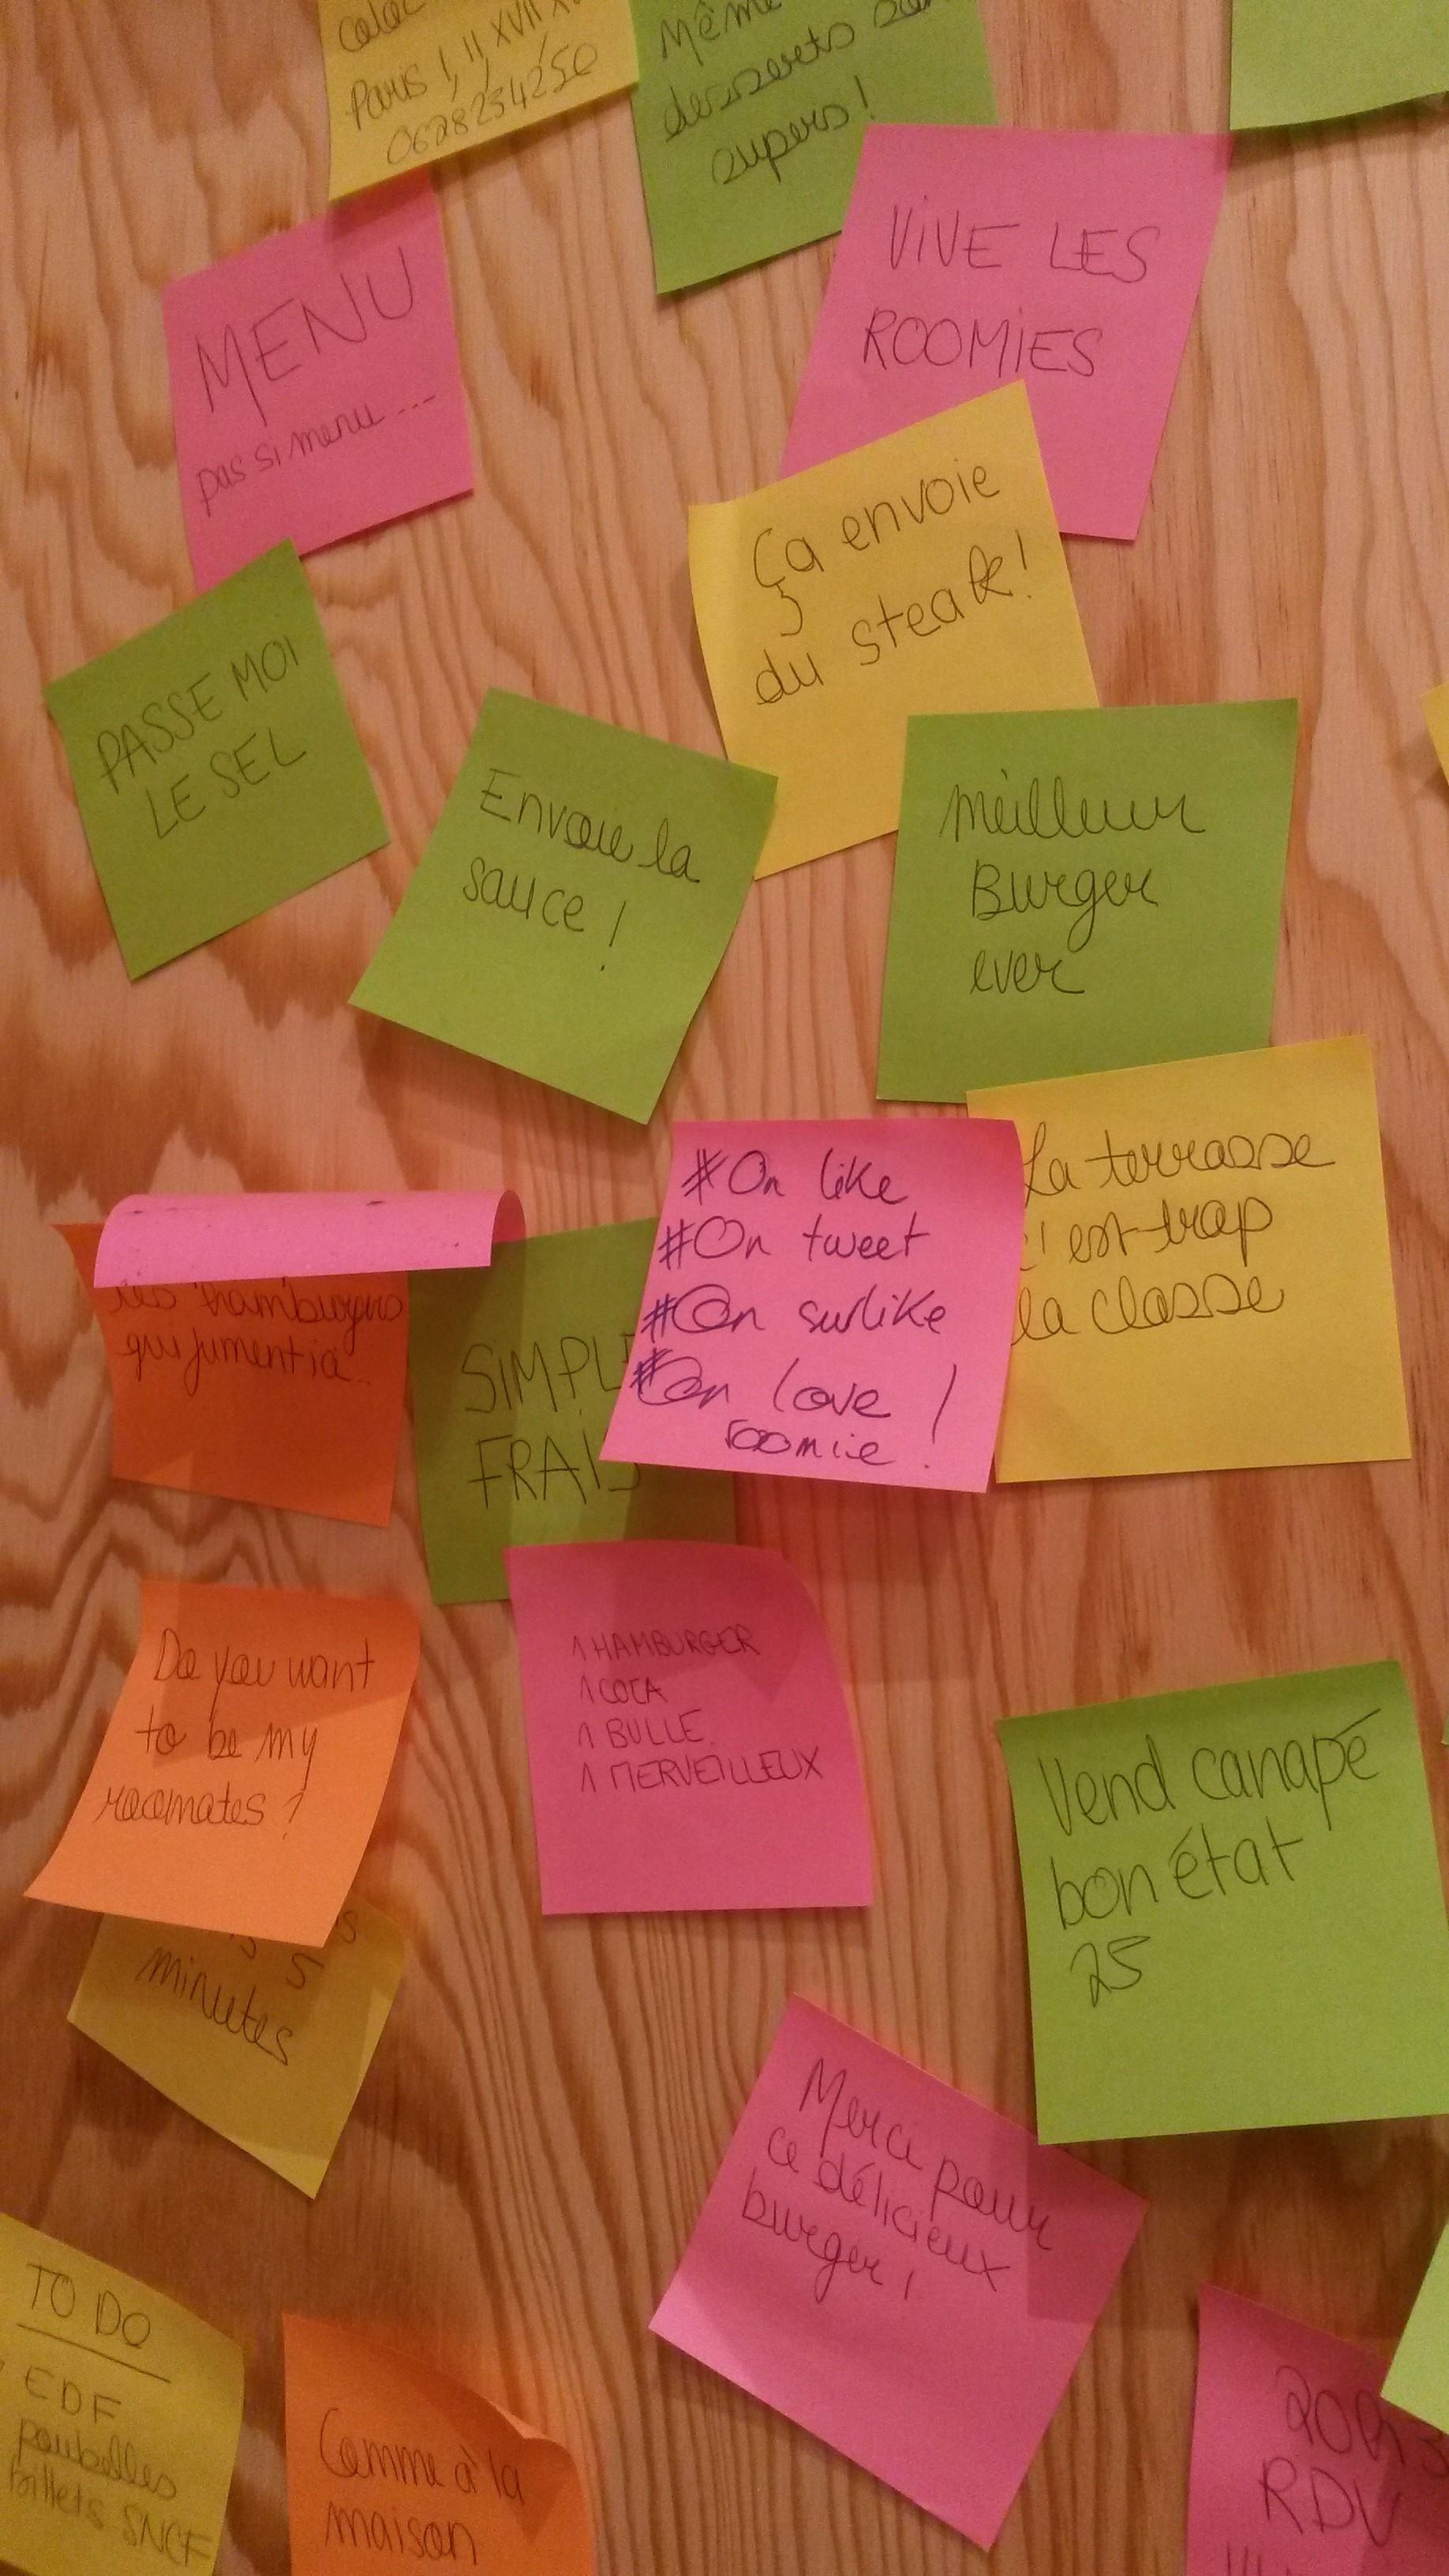 Paris I, II XVII
0628234250
Même
desserts sont
supers!
MENU
pas si menu ...
ViVE LES
ROOMiES
Ça envoie
du steak!
PASSE MOI
LE SEL
Envoie la
sauce !
Meilleur
Burger
ever
#On like
#On tweet
#On surlike
#On love !
roomie
La terrasse
c'est trop
la classe
les hamburgers
qui fument ici..
SIMPLE
FRAIS
Do you want
to be my
roomates ?
1 HAMBURGER
1 COCA
1 BULLE
1 MERVEILLEUX
Vend canapé
bon état
25
5
minutes
Merci pour
ce délicieux
burger !
TO DO
EDF
poubelles
billets SNCF
Comme à la
maison
RDV